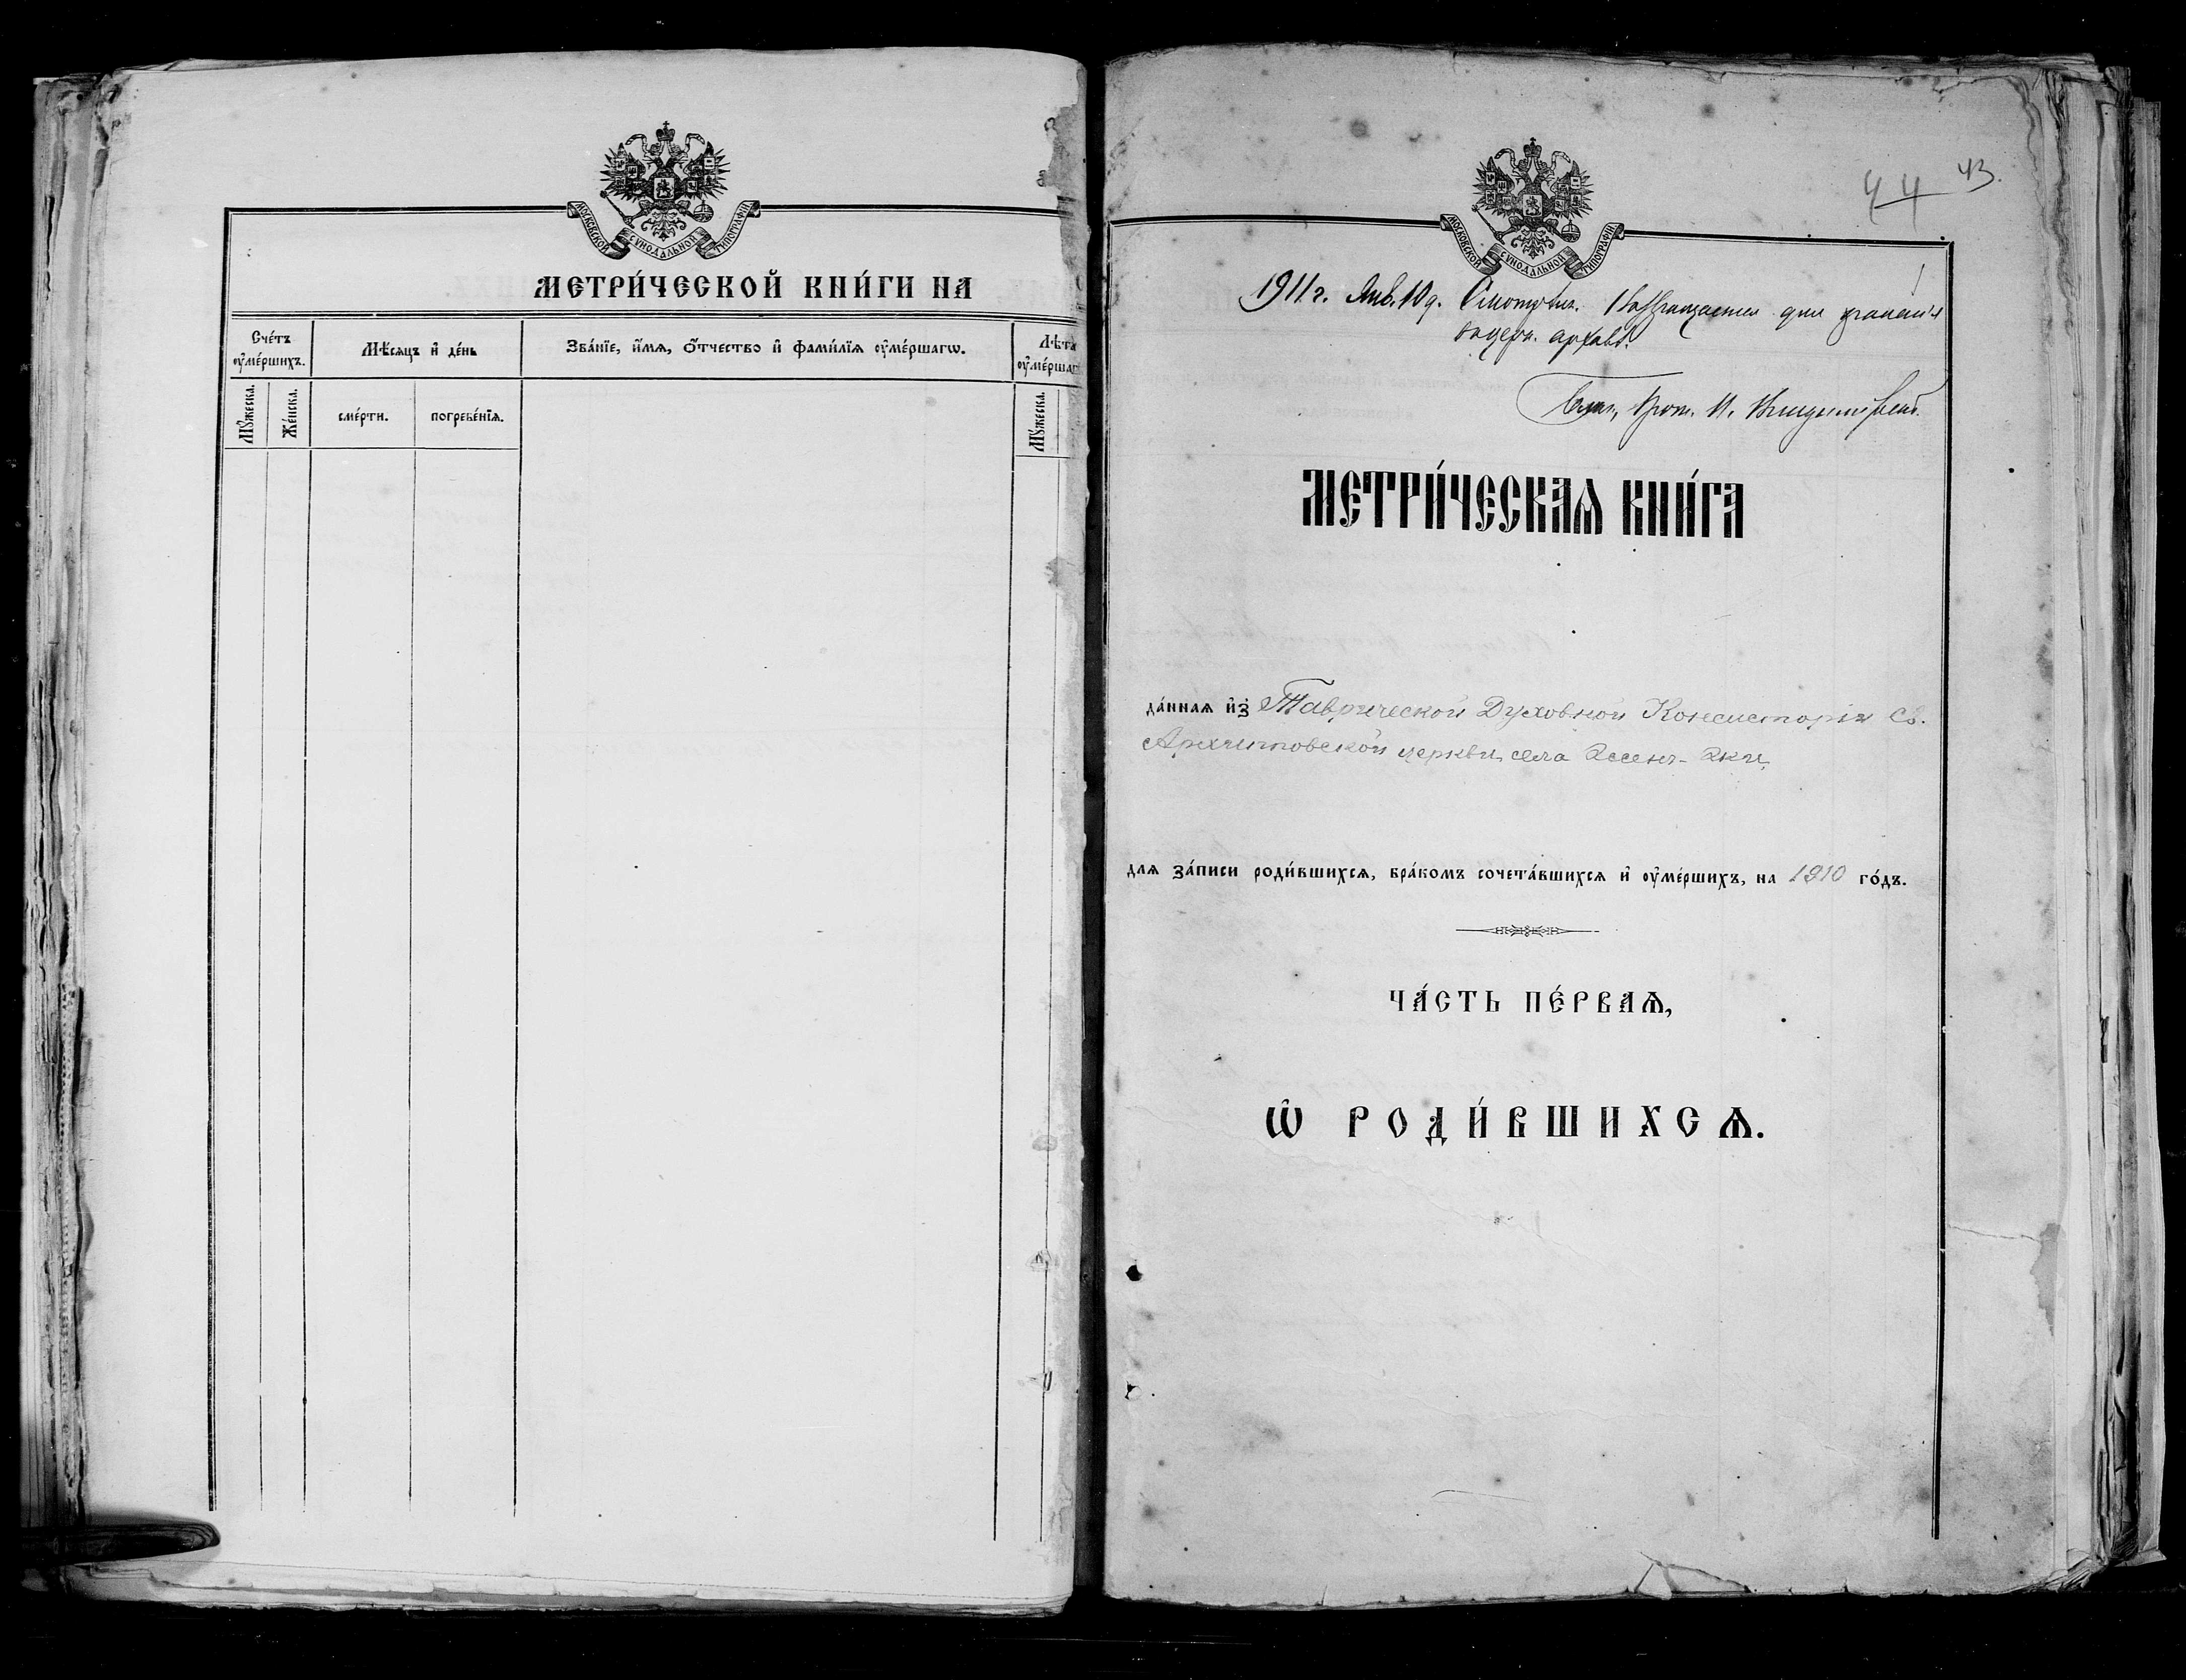 МОСКОВСКОЙ СѴНОДАЛЬНОЙ ТИПОГРАФІИ
МЕТРИ́ЧЕСКОЙ КНИ́ГИ НА
Сче́тъ ᲂу҆ме́ршихъ.
Мѣ́сяцъ и҆ де́нь
Зва́нїе, и҆́мя, ѻ҆́тчество и҆ фами́лїя ᲂу҆ме́ршагѡ.
Лѣ́та ᲂу҆ме́рша
Мꙋ́жеска.
Же́нска.
сме́рти.
погребе́нїя.
Мꙋ́жеска.
44 43.
МОСКОВСКОЙ СѴНОДАЛЬНОЙ ТИПОГРАФІИ
1911 г. Янв. 10 д. Смотрѣлъ. Возвращается для храненія
въ церк. архивѣ.
Прот. И.
МЕТРИ́ЧЕСКАѦ КНИ́ГА
да́ннаѧ и҆з̾ Таврической Духовной Консисторіи Св.
Архипповской церкви села Ассенъ-Аки,
длѧ за́писи роди́вшихсѧ, бра́комъ сочета́вшихсѧ и҆ ᲂу҆ме́ршихъ, на 1910 го́дъ.
ЧА́СТЬ ПЕ́РВАѦ,
Ѡ҆ РОДИ́ВШИХСѦ.